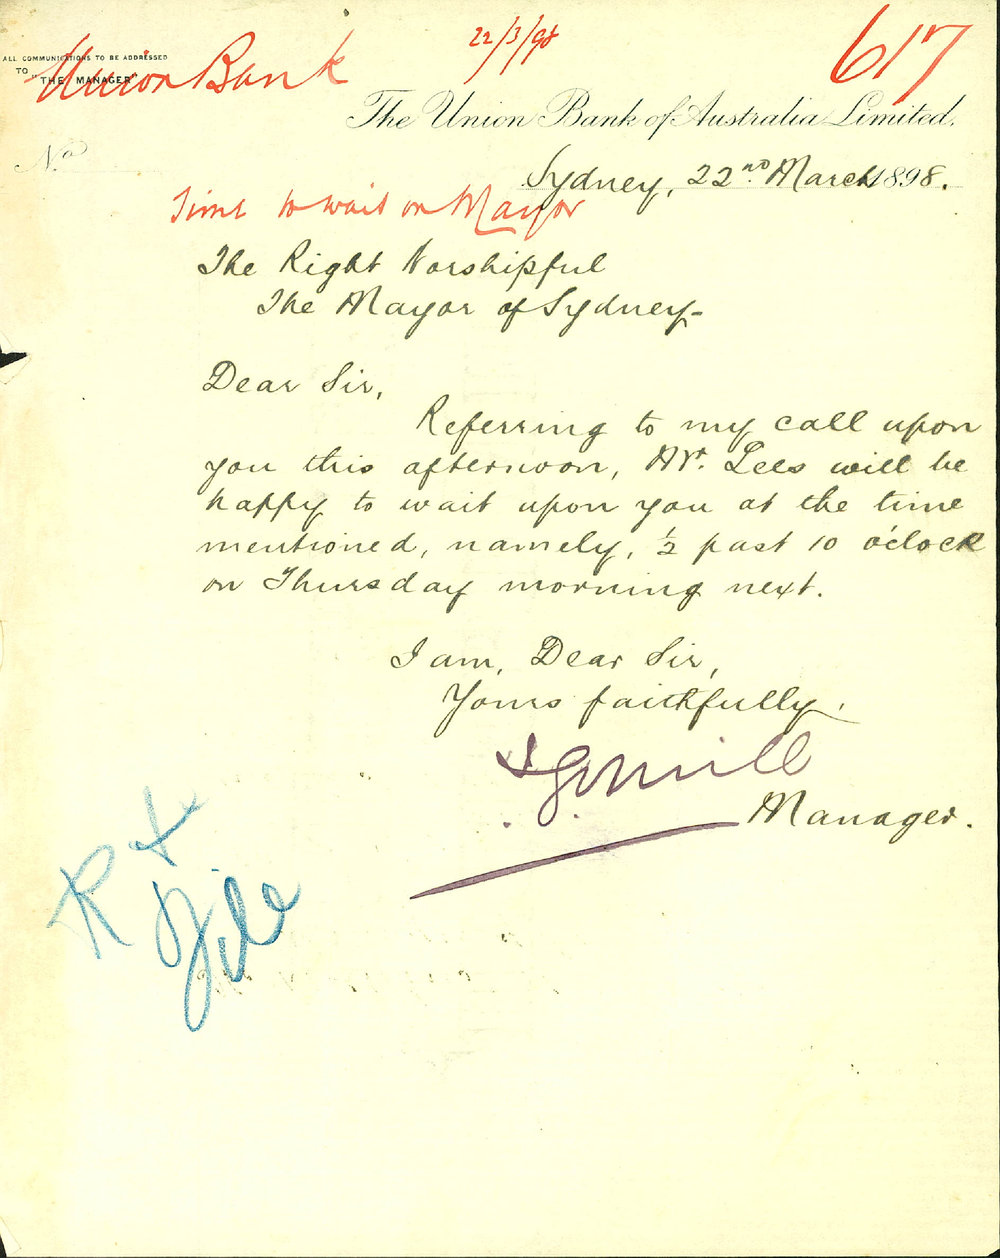 Union Bank
22/3/98
617
ALL COMMUNICATIONS TO BE ADDRESSED
TO "THE MANAGER"
The Union Bank of Australia Limited.
No.
Sydney, 22nd March 1898.
Time to wait on Mayor
The Right Worshipful
The Mayor of Sydney-
Dear Sir,
Referring to my call upon
you this afternoon, Mr. Lees will be
happy to wait upon you at the time
mentioned, namely, ½ past 10 o'clock
on Thursday morning next.
I am, Dear Sir,
Yours faithfully.
Manager.
R &
File